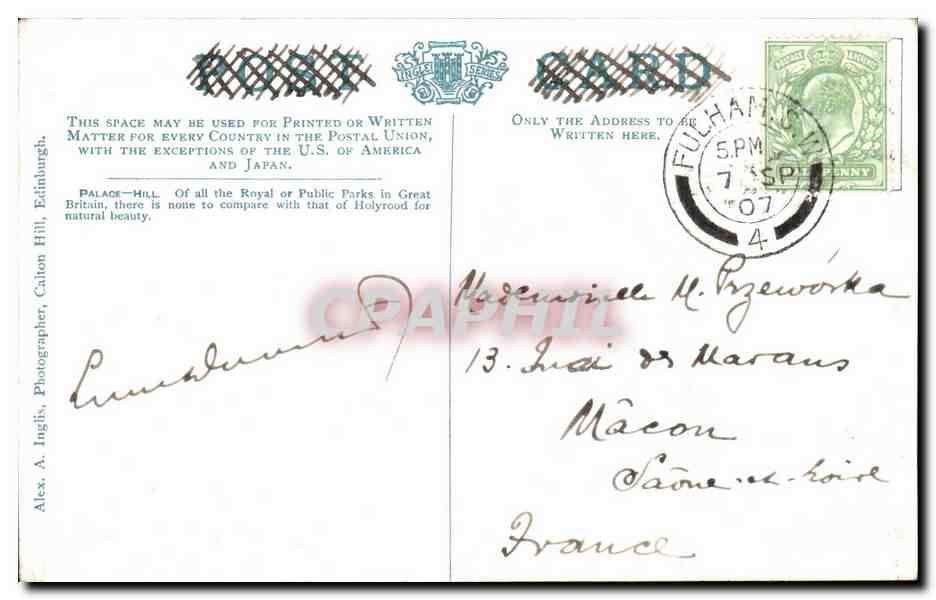 POST CARD
INGLIS SERIES
THIS SPACE MAY BE USED FOR PRINTED OR WRITTEN
MATTER FOR EVERY COUNTRY IN THE POSTAL UNION,
WITH THE EXCEPTIONS OF THE U.S. OF AMERICA
AND JAPAN.
PALACE—HILL. Of all the Royal or Public Parks in Great
Britain, there is none to compare with that of Holyrood for
natural beauty.
Alex. A. Inglis, Photographer, Calton Hill, Edinburgh.
ONLY THE ADDRESS TO BE
WRITTEN HERE.
POSTAGE REVENUE
PENNY
FULHAM S.W
5.PM
7 SP
07
4
CPAPHIL
Mademoiselle M. Przewórska
13. des Marans
Mâcon
Saône-et-Loire
France